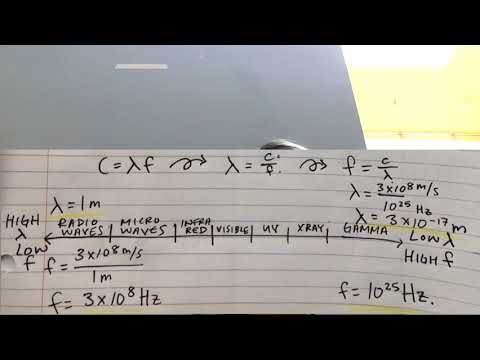 C = λf → λ = c/f. → f = c/λ
λ = 1m
λ = 3×10⁸m/s / 10²⁵ Hz
λ = 3 × 10⁻¹⁷ m
HIGH λ LOW f
RADIO WAVES | MICRO WAVES | INFRA RED | VISIBLE | UV | XRAY | GAMMA
LOW λ HIGH f
f = 3×10⁸m/s / 1m
f = 3×10⁸Hz
f = 10²⁵Hz.